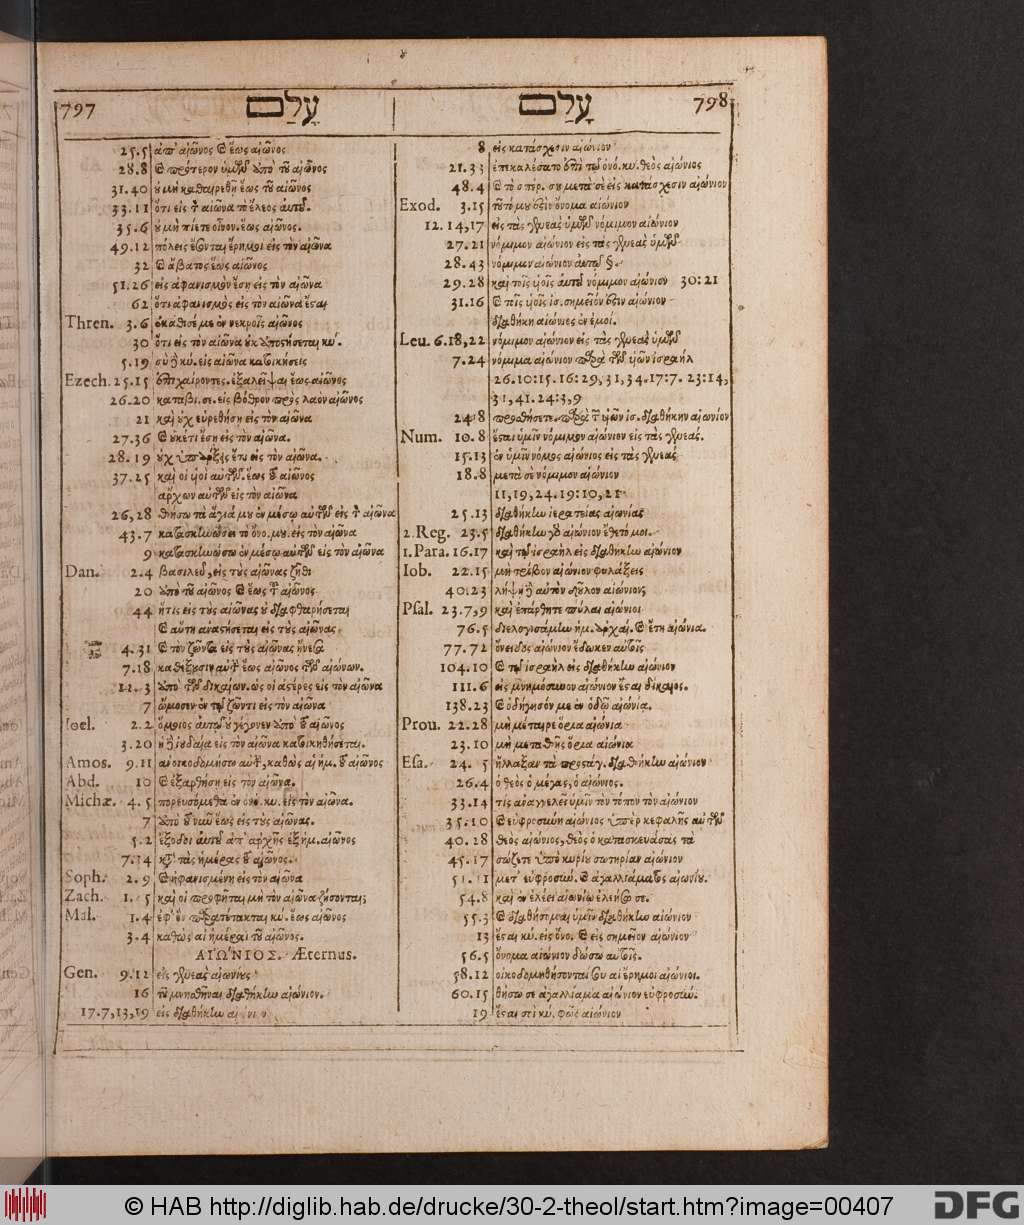 797 עָלַם
25.5 ἀπ' αἰῶνος ϗ ἕως αἰῶνος
28.8 ϗ πρότερον ὑμῶν ὑπὸ τοῦ αἰῶνος
31.40 οὐ μὴ καθαιρεθῇ ἕως τοῦ αἰῶνος
33.11 ὅτι εἰς τ αἰῶνα τὸ ἔλεος αὐτοῦ.
35.6 οὐ μὴ πίετε οἶνον. ἕως αἰῶνος.
49.12 πόλεις ἔσονται ἔρημοι εἰς τὸν αἰῶνα
32 ϗ ἄβατος ἕως αἰῶνος
51.26 εἰς ἀφανισμὸν ἔσῃ εἰς τὸν αἰῶνα
62 ὅτι ἀφανισμὸς εἰς τὸν αἰῶνα ἔσαι
Thren. 3.6 ἐκάθισέ με ἐν νεκροῖς αἰῶνος
30 ὅτι εἰς τὸν αἰῶνα οὐκ ἀπώσεται κυ.
5.19 σὺ κύ. εἰς αἰῶνα κατοικήσεις
Ezech. 25.15 ἐπιχαίροντες. ἐξαλεῖψαι ἕως αἰῶνος
26.20 καταβι. σε. εἰς βόθρον πρὸς λαὸν αἰῶνος
21 καὶ οὐχ εὑρεθήσῃ εἰς τὸν αἰῶνα
27.36 ϗ οὐκέτι ἔσῃ εἰς τὸν αἰῶνα.
28.19 οὐχ ὑπάρξεις ἔτι εἰς τὸν αἰῶνα.
37.25 καὶ οἱ υἱοὶ αὐτῶν. ἕως τοῦ αἰῶνος
ἄρχων αὐτῶν εἰς τὸν αἰῶνα
26,28 θήσω τὰ ἅγιά μου ἐν μέσῳ αὐτῶν εἰς τ αἰῶνα
43.7 κατασκηνώσει τὸ ὄνο. μου. εἰς τὸν αἰῶνα
9 κατασκηνώσω ἐν μέσῳ αὐτῶν εἰς τὸν αἰῶνα
Dan. 2.4 βασιλεῦ, εἰς τοὺς αἰῶνας ζῆθι
20 ἀπὸ τοῦ αἰῶνος ϗ ἕως τοῦ αἰῶνος
44 ἥτις εἰς τοὺς αἰῶνας οὐ διαφθαρήσεται
ϗ αὕτη ἀναστήσεται εἰς τοὺς αἰῶνας
4.31 ϗ τὸν ζῶντα εἰς τοὺς αἰῶνας ᾔνεσα
7.18 καθέξουσιν αὐτ ἕως αἰῶνος τῶν αἰώνων.
12. 3 ἀπὸ τῶν δικαίων. ὡς οἱ ἀστέρες εἰς τὸν αἰῶνα
7 ὤμοσεν ἐν τῷ ζῶντι εἰς τὸν αἰῶνα
Ioel. 2.2 ὅμοιος αὐτῷ οὐ γέγονεν ἀπὸ τοῦ αἰῶνος
3.20 ἡ ἰουδαία εἰς τὸν αἰῶνα κατοικηθήσεται.
Amos. 9.11 ἀνοικοδομήσω αὐτ, καθὼς αἱ ἡμ. τοῦ αἰῶνος
Abd. 10 ϗ ἐξαρθήσῃ εἰς τὸν αἰῶνα.
Michæ. 4. 5 πορευσόμεθα ἐν ὀνο. κυ. εἰς τὸν αἰῶνα.
7 ἀπὸ τοῦ νῦν ἕως εἰς τοὺς αἰῶνας.
5.2 ἔξοδοι αὐτοῦ ἀπ' ἀρχῆς ἐξ ἡμ. αἰῶνος
7.14 κατ τὰς ἡμέρας τοῦ αἰῶνος.
Soph. 2. 9 ϗ ἠφανισμένη εἰς τὸν αἰῶνα
Zach. 1. 5 καὶ οἱ προφῆται μὴ τὸν αἰῶνα ζήσονται;
Mal. 1.4 ἐφ' ὃν παρατέτακται κυ. ἕως αἰῶνος
3.4 καθὼς αἱ ἡμέραι τοῦ αἰῶνος.
ΑΙΩΝΙΟΣ. Æternus.
Gen. 9.12 εἰς γενεὰς αἰωνίους
16 τοῦ μνησθῆναι διαθήκην αἰώνιον.
17.7,13,19 εἰς διαθήκην αἰώνιον
עָלַם 798
8 εἰς κατάσχεσιν αἰώνιον
21.33 ἐπεκαλέσατο ἐπὶ τῷ ὀνό. κυ. θεὸς αἰώνιος
48.4 ϗ τὸ σπέρ. σου μετὰ σὲ εἰς κατάσχεσιν αἰώνιον
Exod. 3.15 τοῦτό μου ἐστὶν ὄνομα αἰώνιον
12.14,17 εἰς τὰς γενεὰς ὑμῶν νόμιμον αἰώνιον
27.21 νόμιμον αἰώνιον εἰς τὰς γενεὰς ὑμῶν
28.43 νόμιμον αἰώνιον αὐτῷ §.
29.28 καὶ τοῖς υἱοῖς αὐτοῦ νόμιμον αἰώνιον 30:21
31.16 ϗ τοῖς υἱοῖς ισ. σημεῖόν ἐστιν αἰώνιον
διαθήκη αἰώνιος ἐν ἐμοί.
Leu. 6.18,22 νόμιμον αἰώνιον εἰς τὰς γενεὰς ὑμῶν
7.24 νόμιμα αἰώνιον παρὰ τῶν υἱῶν ἰσραήλ
26.10:15.16:29,31,34.17:7. 23:14,
31,41.24:3,9
24.8 προσθήσετε. παρὰ τ υἱῶν ισ. διαθήκην αἰωνίον
Num. 10.8 ἔσαι ὑμῖν νόμιμον αἰώνιον εἰς τὰς γενεάς.
15.15 ἐν ὑμῖν νόμος αἰώνιος εἰς τὰς γενεάς
18.8 μετὰ σὲ νόμιμον αἰώνιον
11,19,24.19:10,21
25.13 διαθήκην ἱερατείας αἰωνίας
2.Reg. 23.5 διαθήκην γὰρ αἰώνιον ἔθετό μοι.
1.Para. 16.17 καὶ τῷ ἰσραὴλ εἰς διαθήκην αἰώνιον
Iob. 22.15 μὴ τρίβον αἰώνιον φυλάξεις
40.23 λήψῃ αὐτὸν δοῦλον αἰώνιον;
Psal. 23.7,9 καὶ ἐπάρθητε πύλαι αἰώνιοι
76.5 διελογισάμην ἡμ. ἀρχαί. ϗ ἔτη αἰώνια.
77.72 ὄνειδος αἰώνιον ἔδωκεν αὐτοῖς
104.10 ϗ τῷ ἰσραὴλ εἰς διαθήκην αἰώνιον
111.6 εἰς μνημόσυνον αἰώνιον ἔσαι δίκαιος.
138.23 ϗ ὁδήγησόν με ἐν ὁδῷ αἰωνία.
Prou. 22.28 μὴ μέταιρε ὅρια αἰώνια
23.10 μὴ μεταθῇς ὅρια αἰώνια
Esa. 24. 5 ἤλλαξαν τὰ προστάγ. διαθήκην αἰώνιον
26.4 ὁ θεὸς ὁ μέγας, ὁ αἰώνιος.
33.14 τίς ἀναγγελεῖ ὑμῖν τὸν τόπον τὸν αἰώνιον
35.10 ϗ εὐφροσύνη αἰώνιος ὑπὲρ κεφαλῆς αὐτῶν
40.28 θεὸς αἰώνιος, θεὸς ὁ κατασκευάσας τὰ
45.17 σώζετε ὑπὸ κυρίου σωτηρίαν αἰώνιον
51.11 μετ' εὐφροσύ. ϗ ἀγαλλιάματος αἰωνίου.
54.8 καὶ ἐν ἐλέει αἰωνίῳ ἐλεήσω σε.
55.3 ϗ διαθήσομαι ὑμῖν διαθήκην αἰώνιον
13 ἔσαι κυ. εἰς ὄνο. ϗ εἰς σημεῖον αἰώνιον
56.5 ὄνομα αἰώνιον δώσω αὐτοῖς.
58.12 οἰκοδομηθήσονταί σου αἱ ἔρημοι αἰώνιοι.
60.15 θήσω σε ἀγαλλίαμα αἰώνιον εὐφροσύ.
19 ἔσαι σοὶ κυ. φῶς αἰώνιον
© HAB http://diglib.hab.de/drucke/30-2-theol/start.htm?image=00407
DFG